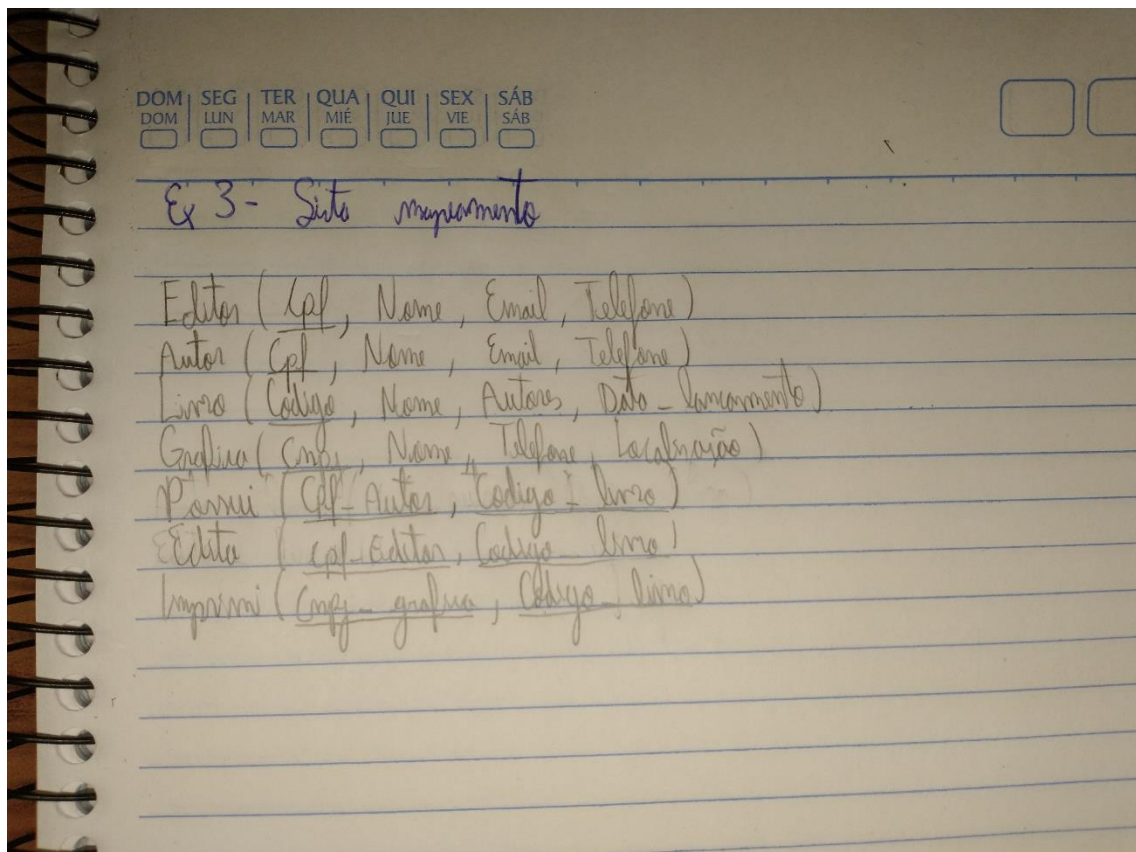 DOM SEG TER QUA QUI SEX SÁB
DOM LUN MAR MIÉ JUE VIE SÁB
Ex 3 - mapeamento
Editor (Cpf, Nome, Email, Telefone)
Autor (Cpf, Nome, Email, Telefone)
Livro (Código, Nome, Autores, Data_lancamento)
Grafica (Cnpj, Nome, Telefone, Localização)
Possui (Cpf_Autor, Codigo_livro)
Edita (cpf_Editor, Codigo_livro)
Imprimi (Cnpj_grafica, Código_livro)